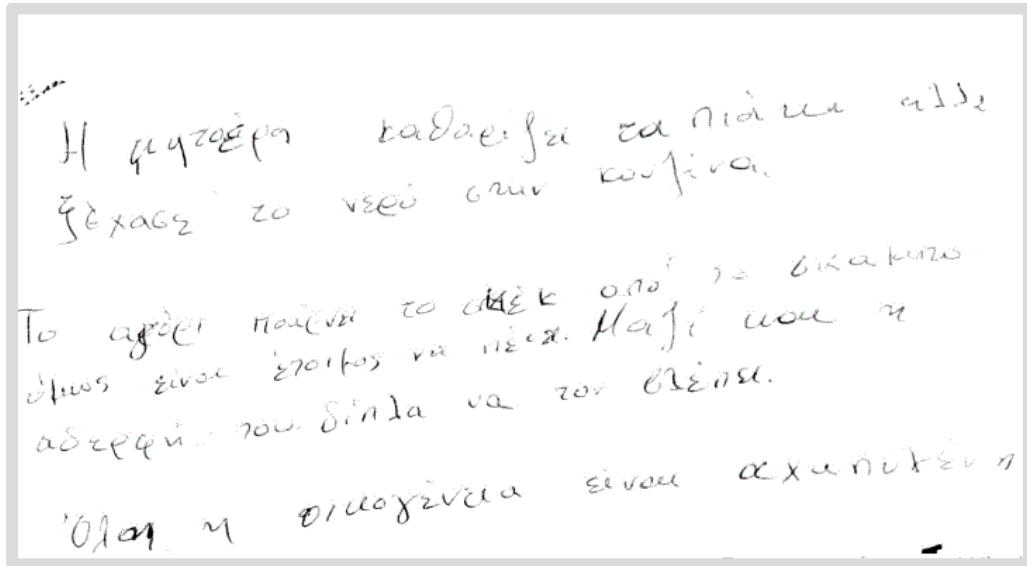 Η μητρέρα καθαρίζει τα πιάτα αλλά
ξέχασε το νερό στην κουζίνα.
Το αγόρι παίρνει το κέκ από το σκαμπο
όμως είναι έτοιμος να πέσει. Μαζί και η
αδερφή του δίπλα να τον βλέπει.
Όλη η οικογένεια είναι